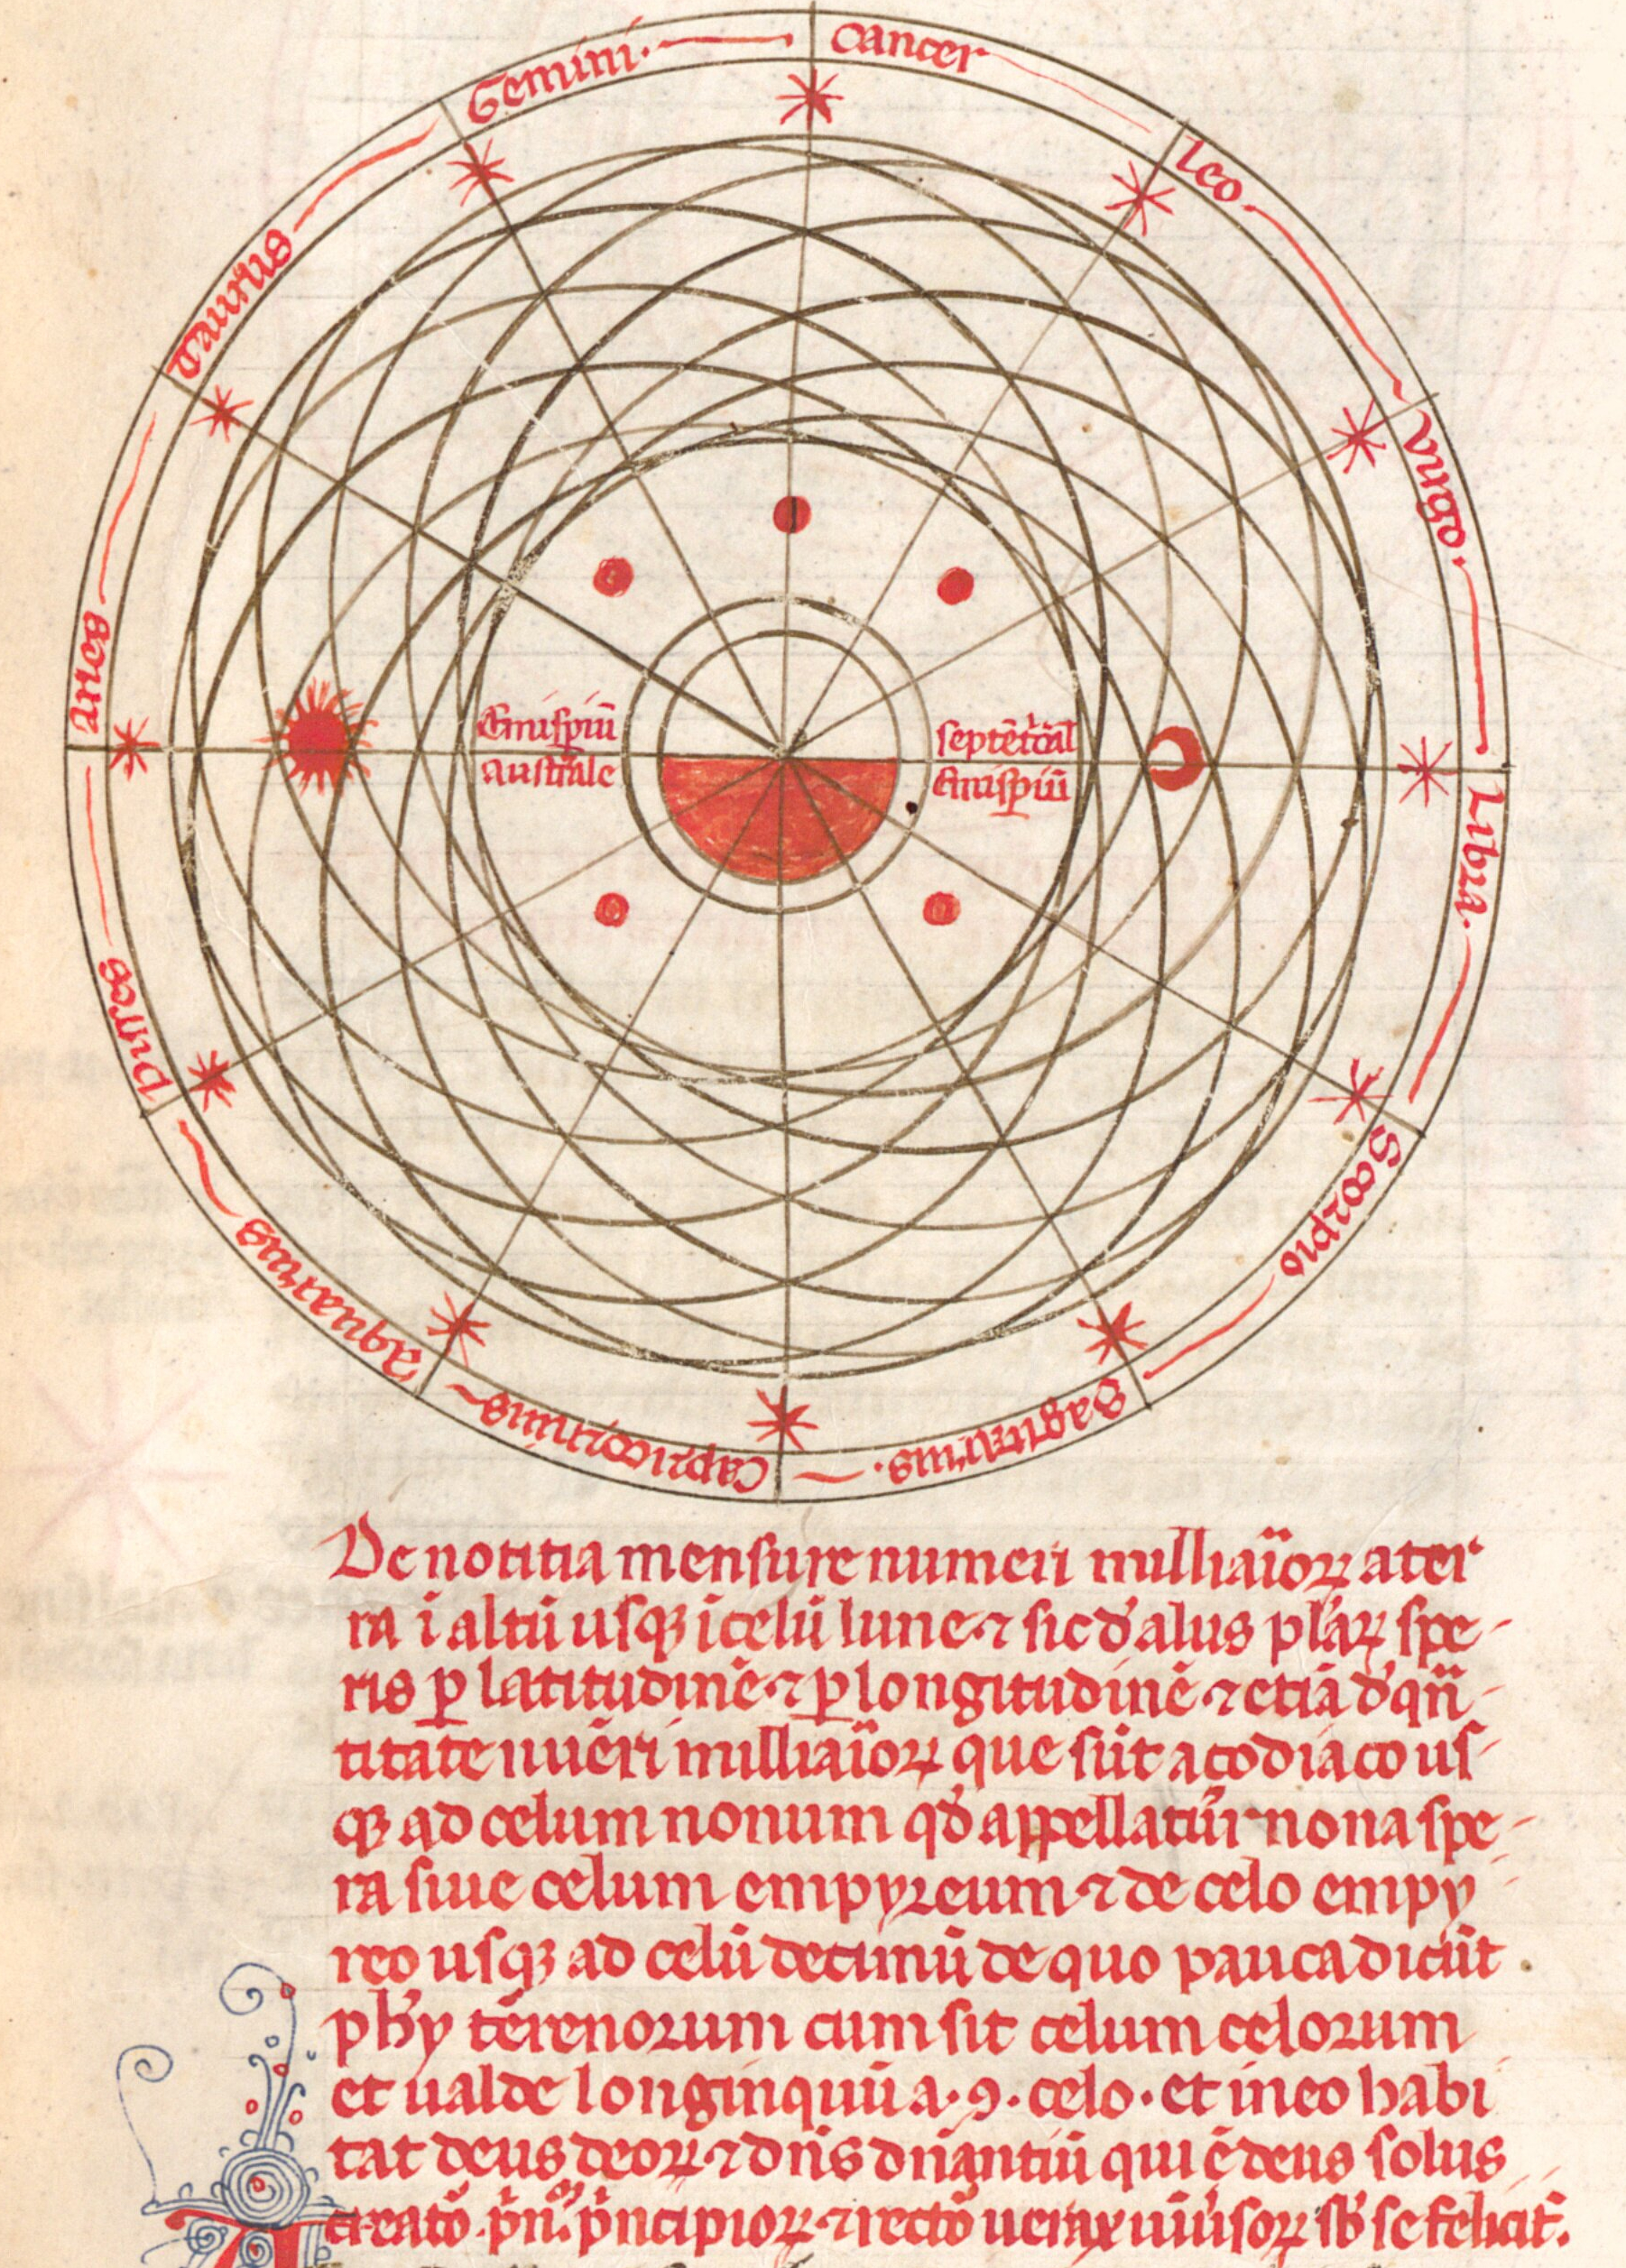 Gemini.
Cancer
Leo.
Virgo.
Libra.
Scorpio
Sagittarius.
Capricornus
Aquarius
Pisces
Aries
Taurus
Emispiū
australe
septēt'cal
Emispiū
De notitia mensure numeri milliaïoꝝ a ter
ra ī altū usqꝫ ī celū lune ⁊ sic d' alus plaꝝ spe
ris p latitudinē ⁊ p longitudinē ⁊ etiā d' qn̄
titate nūeri milliaïoꝝ que sūt a çodiaco us
qꝫ ad celum nonum qd' appellatur nona spe
ra siue celum empyreum ⁊ de celo empy
reo usqꝫ ad celū decimū de quo pauca dicūt
phy terrenorum cum sit celum celorum
et ualde longinquū a .9. celo. et in eo habi
tat deus deoꝝ ⁊ dn̄s dn̄antiū qui ē deus solus
creatō pn. pncipioꝝ ⁊ rectō uniūsoꝝ sb' se